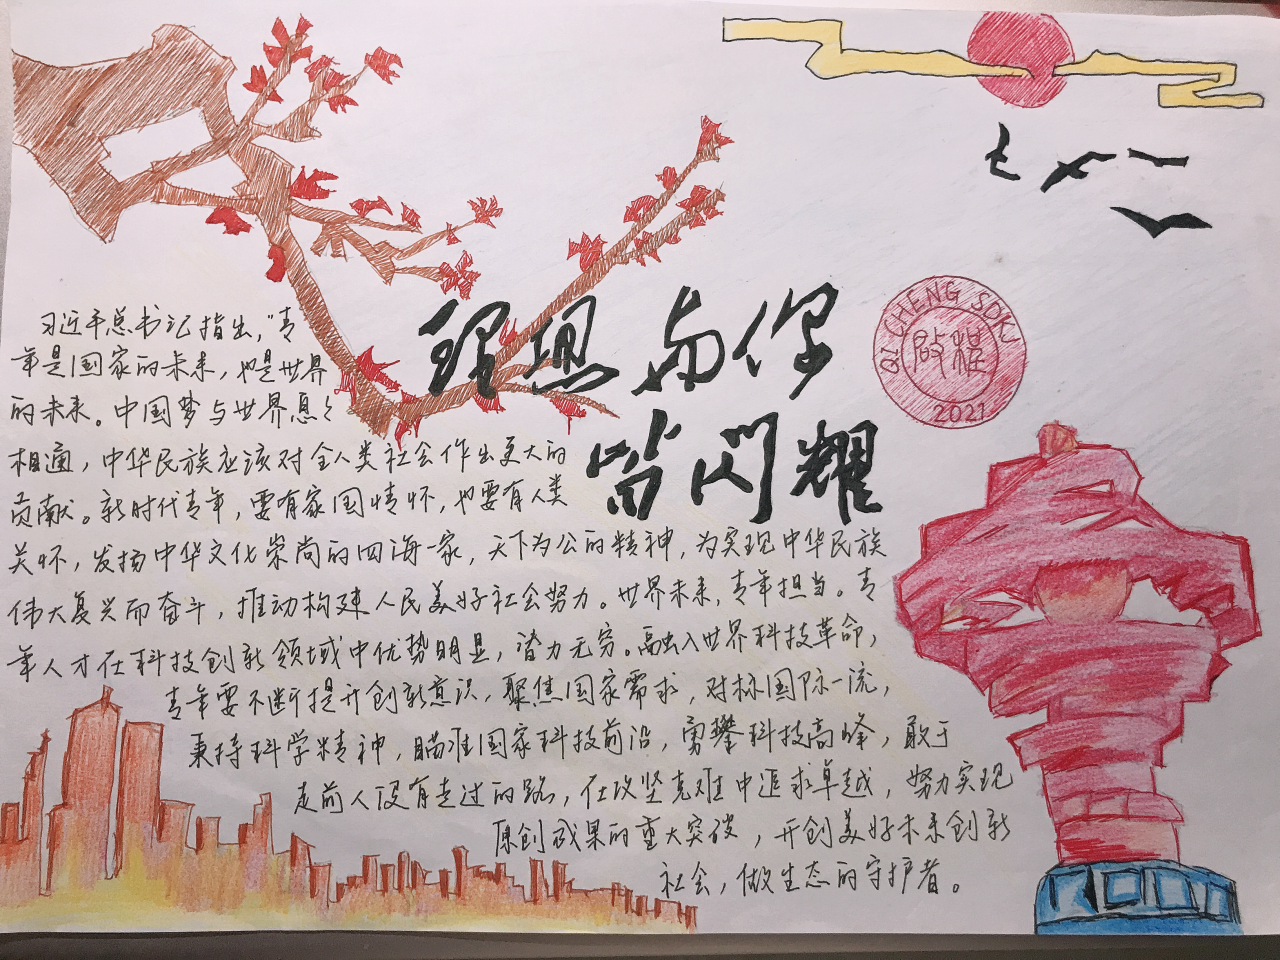 理想与你
皆闪耀
QI CHENG SDKJ
啟程
2021
习近平总书记指出，“青
年是国家的未来，也是世界
的未来。中国梦与世界息息
相通，中华民族应该对全人类社会作出更大的
贡献。新时代青年，要有家国情怀，也要有人类
关怀，发扬中华文化崇尚的四海一家，天下为公的精神，为实现中华民族
伟大复兴而奋斗，推动构建人民美好社会努力。世界未来，青年担当。青
年人才在科技创新领域中优势明显，潜力无穷。融入世界科技革命，
青年要不断提升创新意识，聚焦国家需求，对标国际一流，
秉持科学精神，瞄准国家科技前沿，勇攀科技高峰，敢于
走前人没有走过的路，在攻坚克难中追求卓越，努力实现
原创成果的重大突破，开创美好未来创新
社会，做生态的守护者。